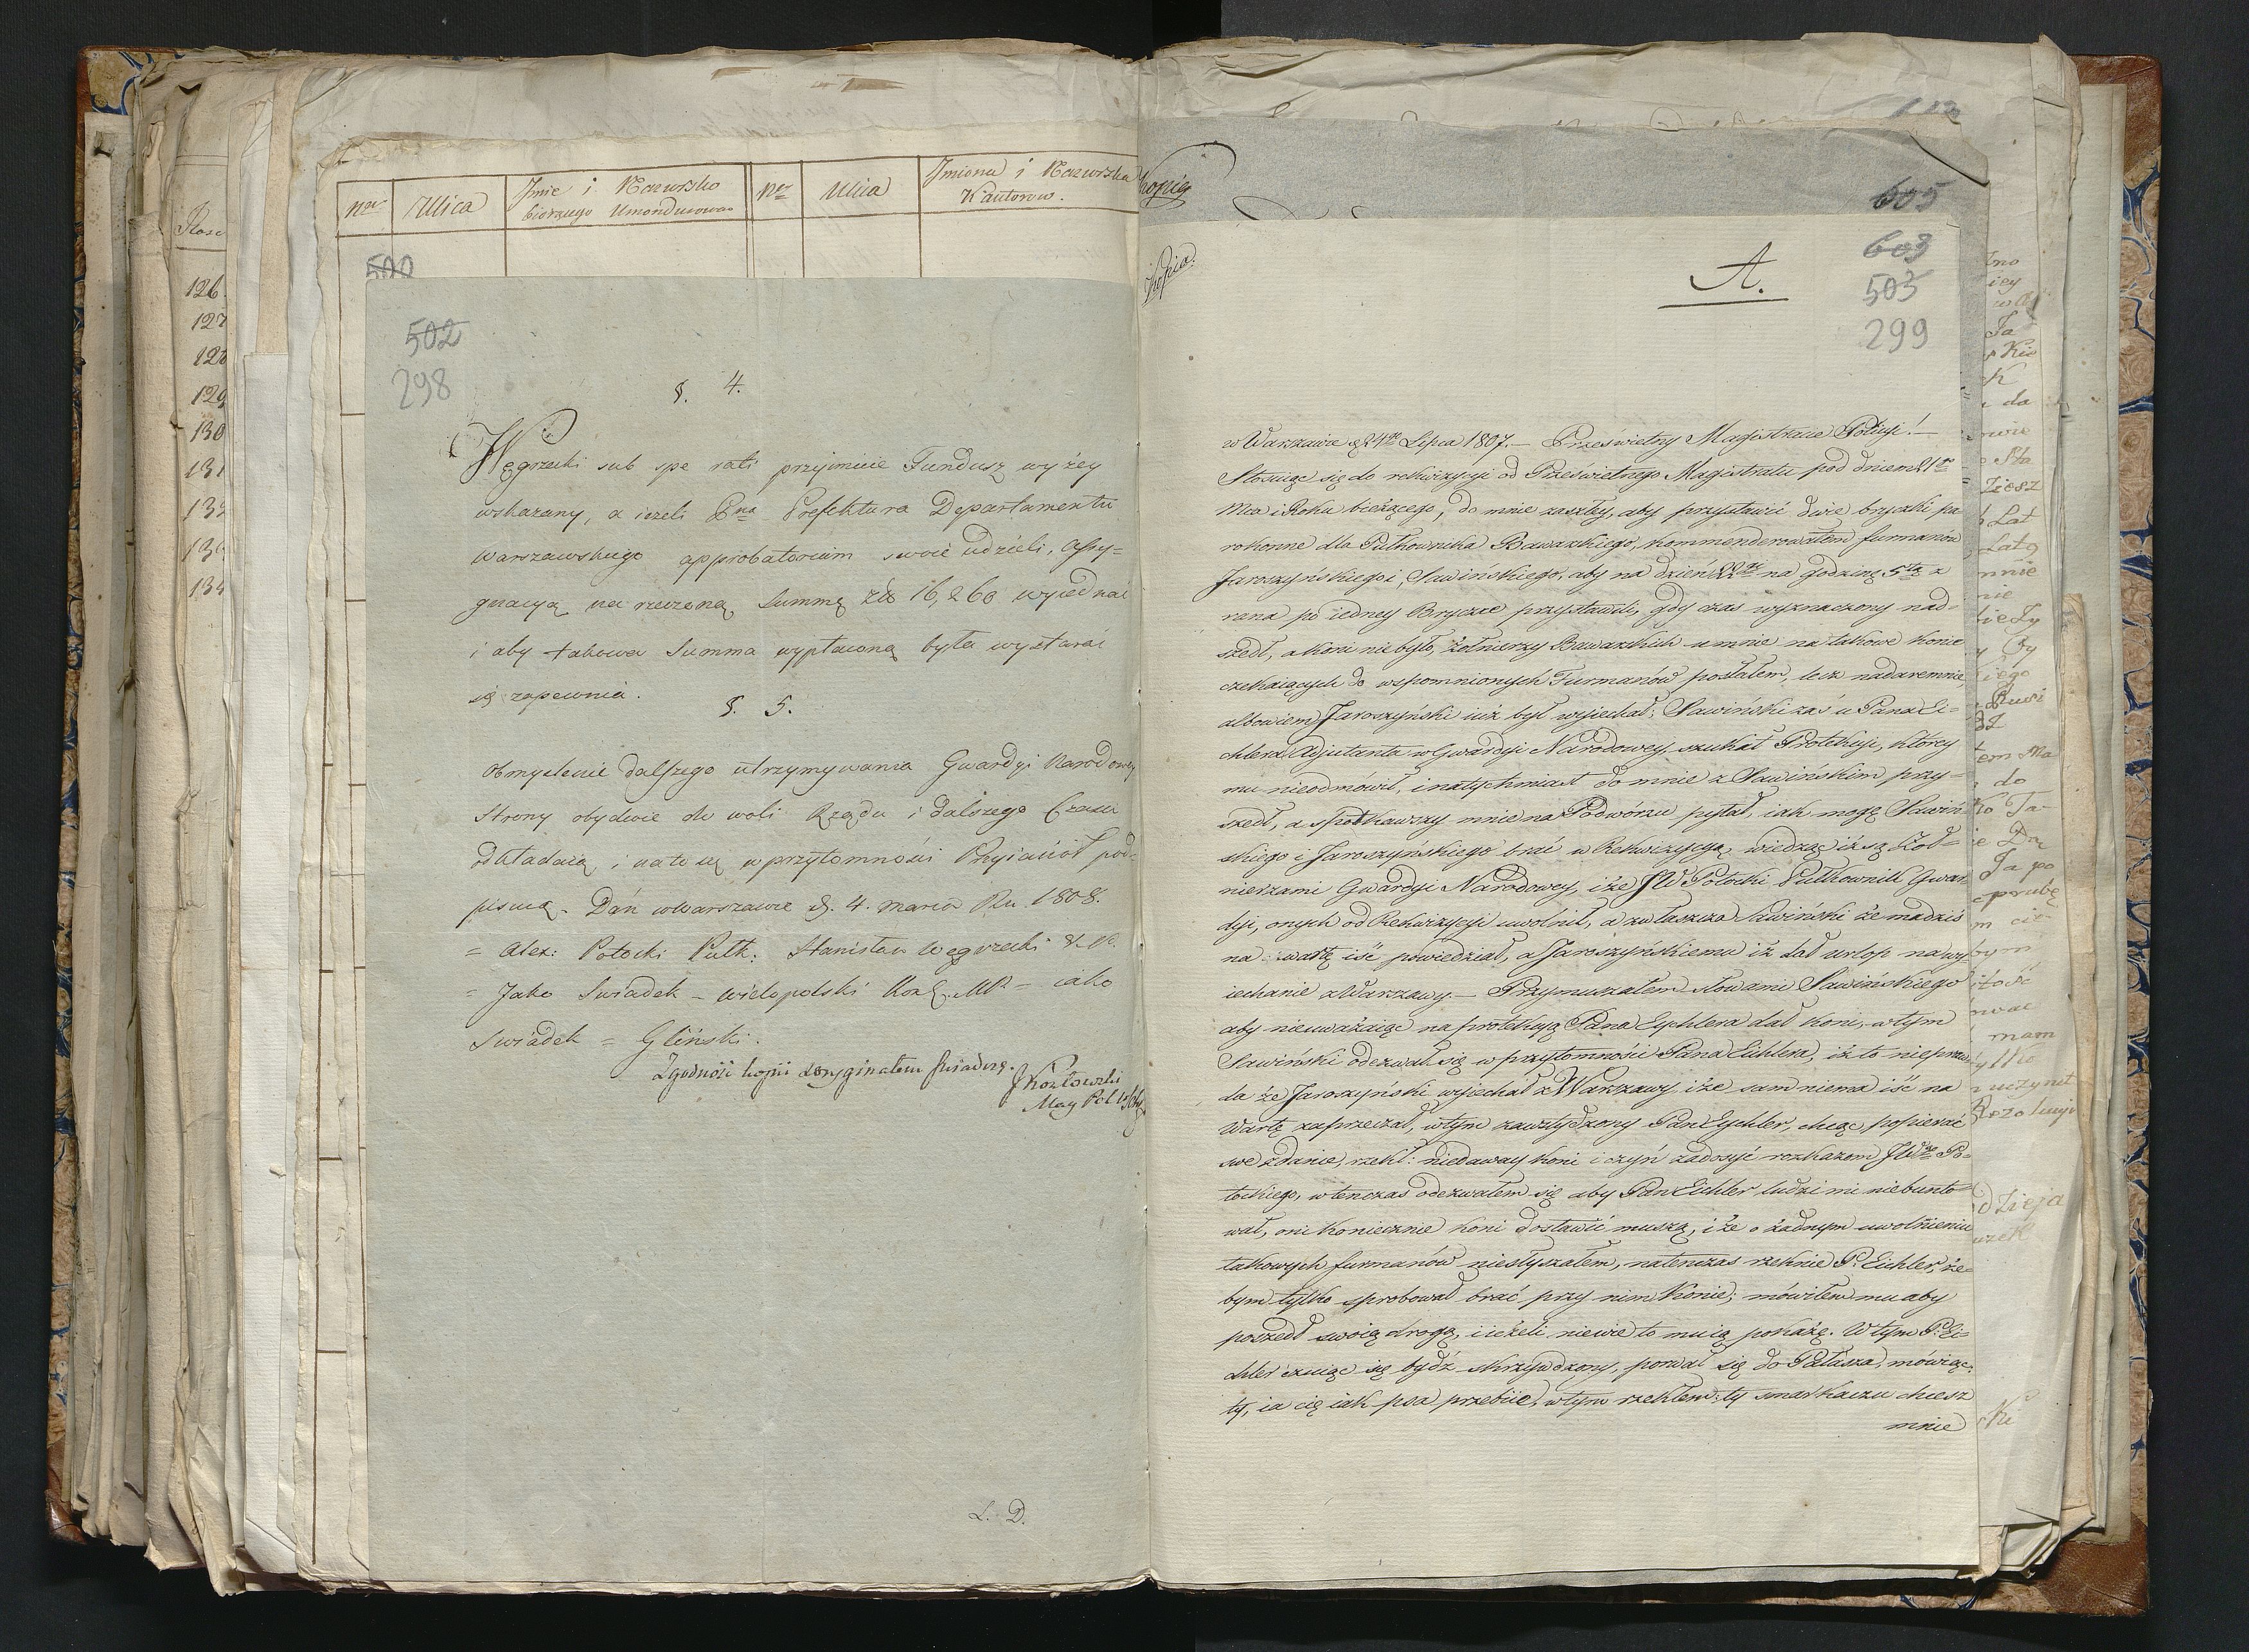 Nro
Ulica
Jmie i Nazwisko
biorącego Umondurowa
Nro
Ulica
Jmiona i Nazwiska
Kantorow.
500
502
298
§. 4.
Węgrzecki sub spe rati przyimuie Fundusz wyżey
wskazany, a ieżeli Prefektura Departamentu
Warszawskiego approbatorium swoie udzieli, Assy=
gnacyą na rzeczoną Summę Zł 16,260 wyiednać
i aby takowa Summa wypłaconą była wystarać
się zapewnia.
§. 5.
Obmyślenie dalszego utrzymywania Gwardyi Narodowey
Strony obydwie do woli Rządu i dalszego Czasu
odkładaią i na to się w przytomności Przyiaciół pod=
pisuią. Dań w Warszawie d. 4. Marca Ru 1808.
= Alex: Potocki Pułk: Stanisław Węgrzecki
= Jako Swiadek – Wielopolski = iako
Swiadek = Gliński.
Zgodność kopii z oryginałem świadczę.
JKozłowski
L. D.
126.
127
128
129
130
131
132
134
kopia
605
Kopia.
A.
603
503
299
w Warszawie d 24go Lipca 1807. – Prześwietny Magistracie Policyi! –
Stosuiąc się do rekwizycyi od Prześwietnego Magistratu pod dniem 21go
Mca i Roku bieżącego, do mnie zaszłey, aby przystawić dwie bryczki pa
rokonne dla Pułkownika Bawarskiego, kommenderowałem furmanów
Jaroszyńskiego i Sawińskiego, aby na dzień 22go na godzinę 5tą z
rana po iedney Bryczce przystawili, gdy czas wyznaczony nad=
szedł, a koni niebyło, żołnierzy Bawarskich u mnie na takowe konie
czekaiących do wspomnionych Furmanów posłałem, lecz nadaremnie,
albowiem Jaroszyński iuż był wyiechał; Sawiński zaś u Pana Ei=
chlera Adjutanta w Gwardyi Narodowey szukał Protekcyi, którey
mu nieodmówił, i natychmiast do mnie z Sawińskim przy=
szedł, a spotkawszy mnie na Podwórzu pytał, iak mogę Sawiń=
skiego i Jaroszyńskiego brać w Rekwizycyą wiedząc iż są Żoł=
nierzami Gwardyi Narodowey, i że JW Potocki Pułkownik Gwar
dyi, onych od Rekwizycyi uwolnił, a zwłaszcza Sawiński że ma dziś
na wartę iść powiedział, a Jaroszyńskiemu iż dał urlop na wy=
iechanie z Warszawy. – Przymuszałem słowami Sawińskiego
aby nieuważaiąc na protekcyą Pana Eychlera dał koni, w tym
Sawiński odezwał się w przytomności Pana Eichlera, iż to niepraw
da że Jaroszyński wyiechał z Warszawy i że sam niema iść na
Wartę zaprzeczał, w tym zawstydzony Pan Eychler, chcąc popierać
swe zdanie, rzekł: niedaway koni i czyń zadosyć rozkazom JWgo Po=
tockiego, wtenczas odezwałem się aby Pan Eichler ludzi mi niebunto=
wał, oni koniecznie koni dostawić muszą, i że o żadnym uwolnieniu
takowych furmanów niesłyszałem, natenczas rzeknie P. Eichler, że=
bym tylko sprobował brać przy nim Konie; mówiłem mu aby
poszedł swoią drogą, i ieżeli niewie to mu ią pokażę. W tym P. Ei=
chler czuiąc się bydź skrzywdzony, porwał się do Pałasza, mówiąc:
ty, ia cię iak psa przebiie, w tym rzekłem: ty smarkaczu chcesz
mnie